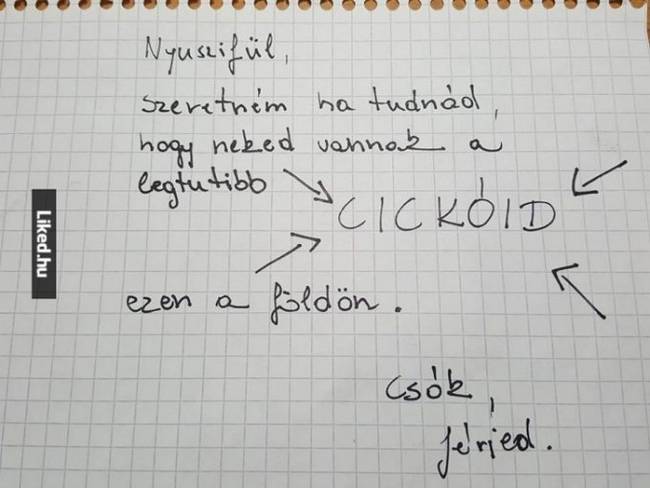 Nyuszifül,
szeretném ha tudnád,
hogy neked vannak a
legtutibb
CICKÓID
ezen a földön.
Csók,
férjed.
Liked.hu